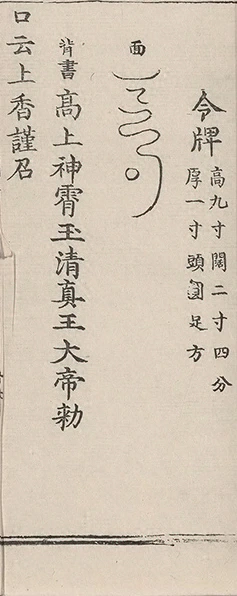 令牌
高九寸闊二寸四分
厚一寸頭圓足方
面
背書高上神霄玉清真王大帝勅
口云上香謹召